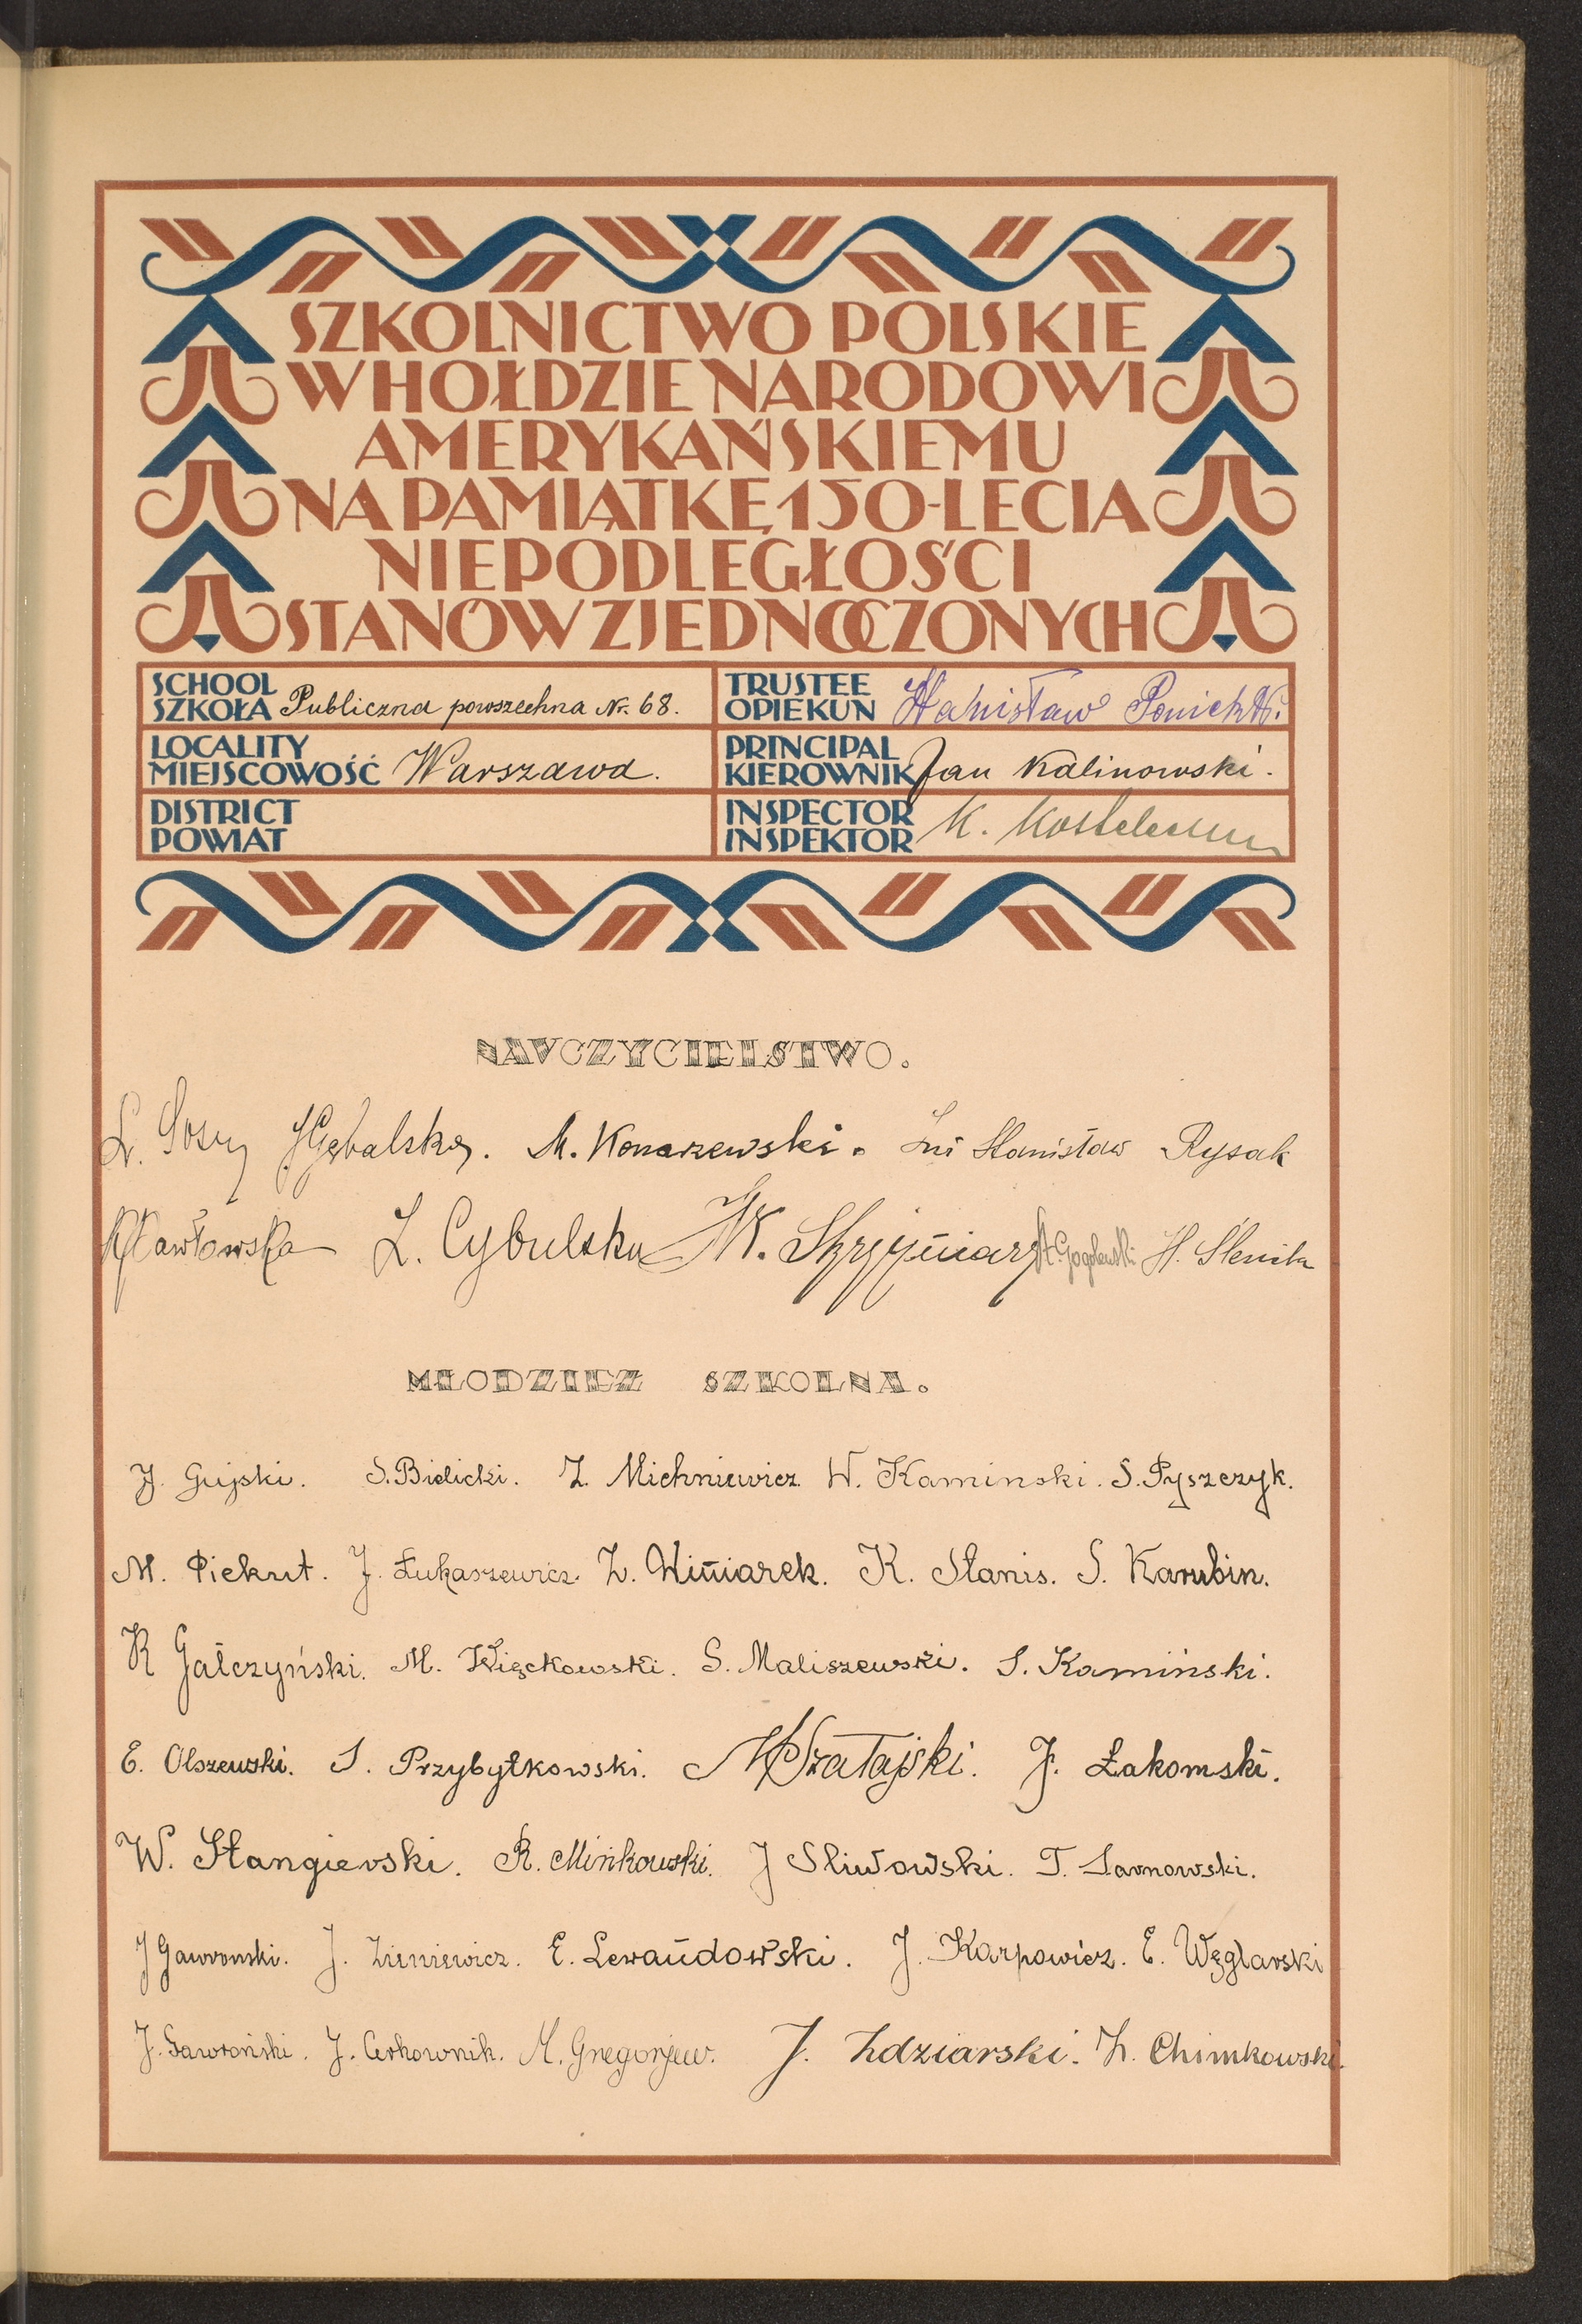 SZKOLNICTWO POLSKIE
W HOŁDZIE NARODOWI
AMERYKAŃSKIEMU
NA PAMIĄTKĘ 150-LECIA
NIEPODLEGŁOŚCI
STANÓW ZJEDNOCZONYCH
SCHOOL
SZKOŁA Publiczna powszechna Nr. 68.
TRUSTEE
OPIEKUN Stanisław
LOCALITY
MIEJSCOWOŚĆ Warszawa.
PRINCIPAL
KIEROWNIK Jan Kalinowski.
DISTRICT
POWIAT
INSPECTOR
INSPEKTOR K.
NAUCZYCIELSTWO.
L. M. Konarzewski. Stanisław Rysak
Pawłowska Z. Cybulska W. St. Gogolewski H.
MŁODZIEŻ SZKOLNA.
J. Gujski. S. Bielicki. Z. Michniewicz W. Kaminski. S. Pyszczyk.
M. Piekut. J. Łukaszewicz. Z. Winiarek. K. Stanis. S. Karubin.
R Gałczyński. M. Więckowski. S. Maliszewski. S. Kamiński.
E. Olszewski. S. Przybyłkowski. M Szatajski. J. Łakomski.
W. Stangierski. R. Minkowski. J Sliwowski. T. Sarnowski.
J Gawronski. J. Zieniewicz. E. Lewandowski. J. Karpowicz. E. Węglarski
J. Gawroński. J. Cerkownik. M. Gregorjew. J. Zdziarski. Z. Chimkowski.